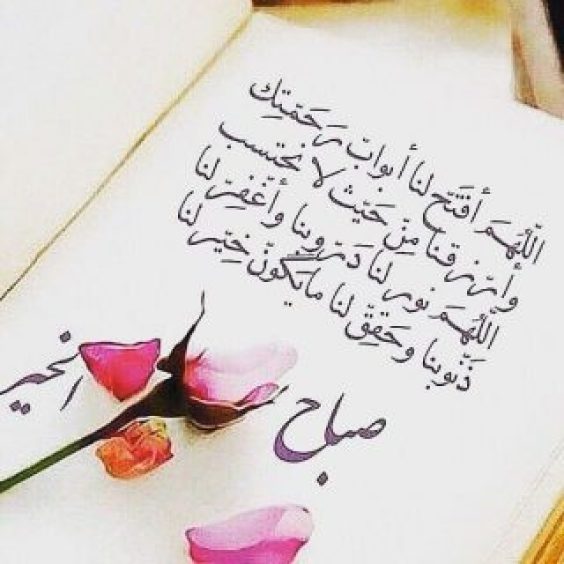 اللّهمَ أفتَح لنا أبوابّ رَحَمّتِك
وأرّزقنا مِنّ حَيّث لا نحتسب
اللّهمَ نور لنا دَرّوبنا وأغّفِرّ لنا
ذَنّوبنا وحَقِقّ لنا مايَكّونّ خِيّر لنا
صباح الخير